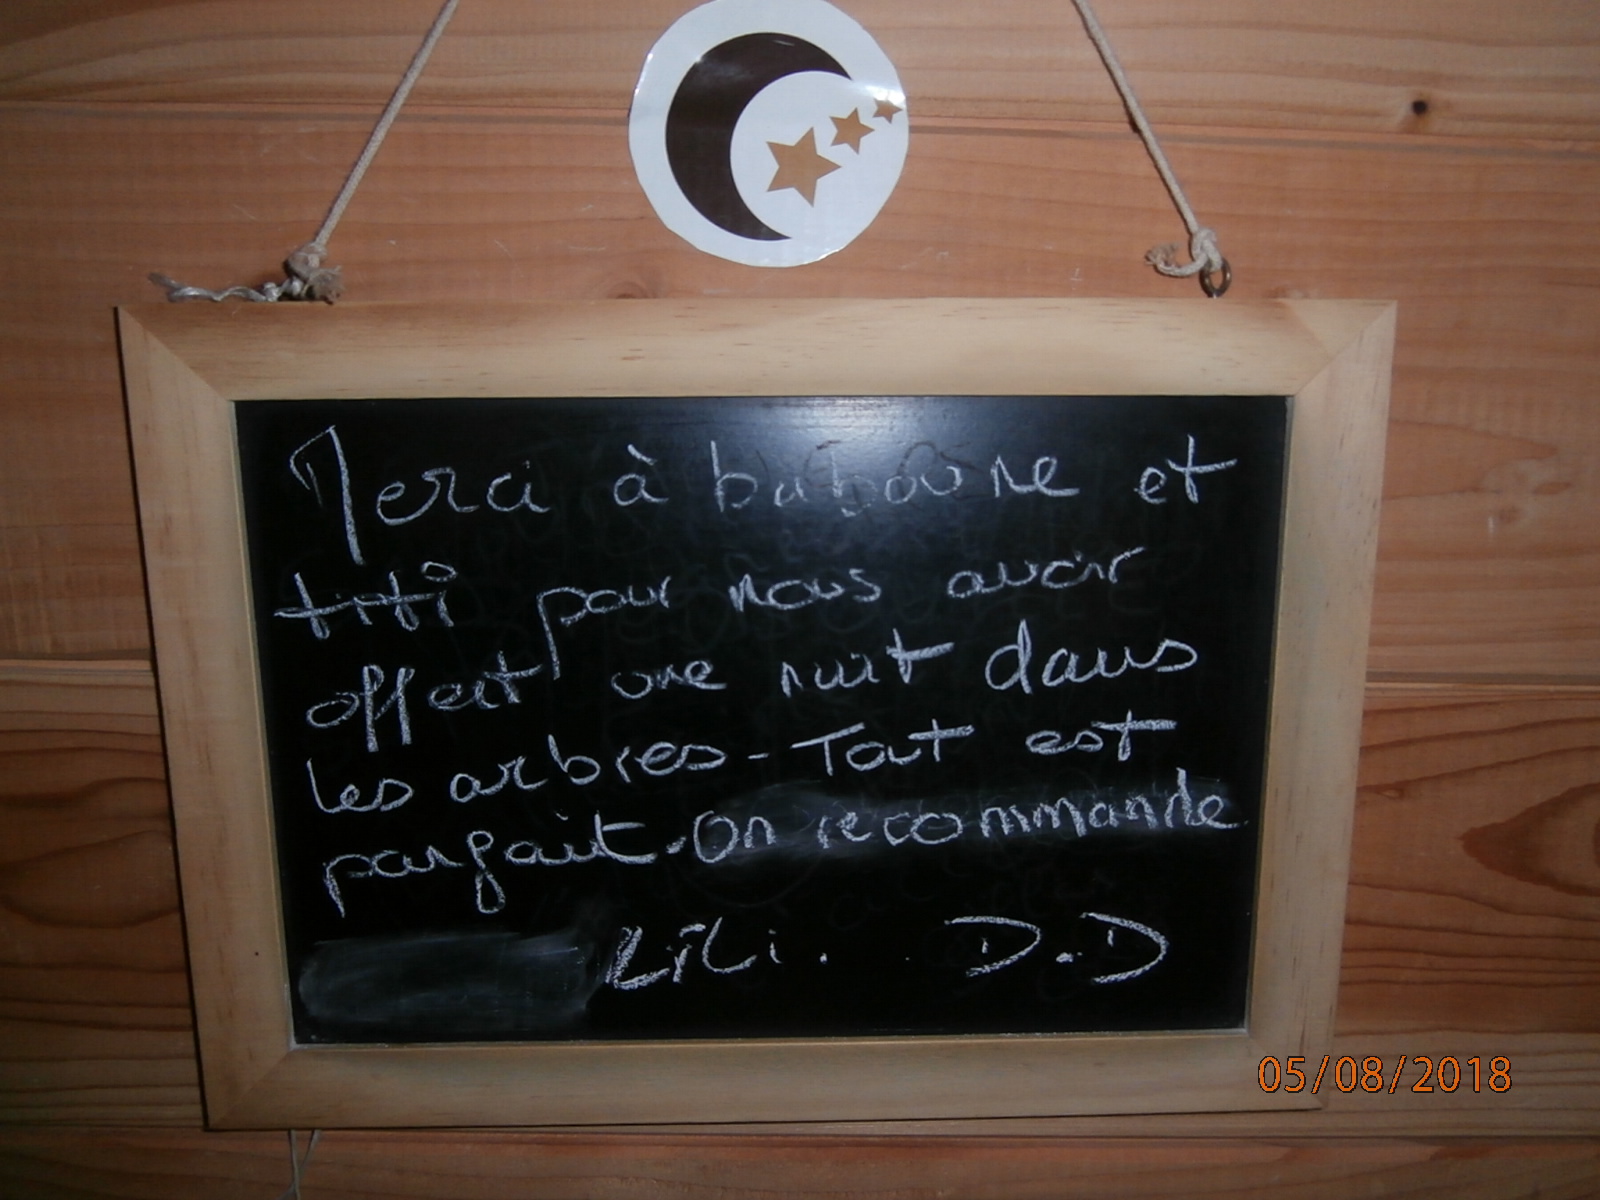 Merci à baboune et
titi pour nous avoir
offert une nuit dans
les arbres - Tout est
parfait. On recommande
LiLi. D.D
05/08/2018